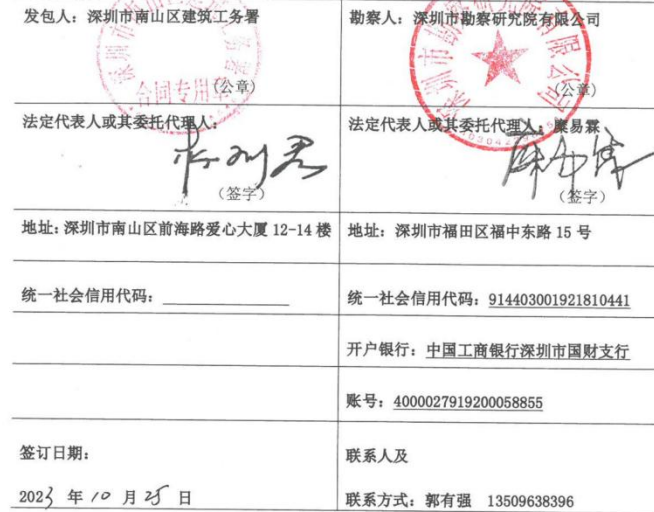 发包人：深圳市南山区建筑工务署
勘察人：深圳市勘察研究院有限公司
合同专用章
（公章）
（公章）
法定代表人或其委托代理人：
法定代表人或其委托代理人：糜易霖
（签字）
（签字）
地址：深圳市南山区前海路爱心大厦 12-14 楼
地址：深圳市福田区福中东路 15 号
统一社会信用代码：
统一社会信用代码：914403001921810441
开户银行：中国工商银行深圳市国财支行
账号：4000027919200058855
签订日期：
联系人及
2023 年 10 月 25 日
联系方式：郭有强 13509638396